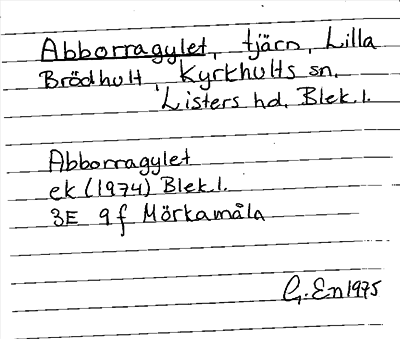 Abborragylet, tjärn, Lilla
Brödhult, Kyrkhults sn.
Listers hd. Blek.l.
Abborragylet
ek (1974) Blek.l.
3E 9f Mörkamåla
G. En 1975